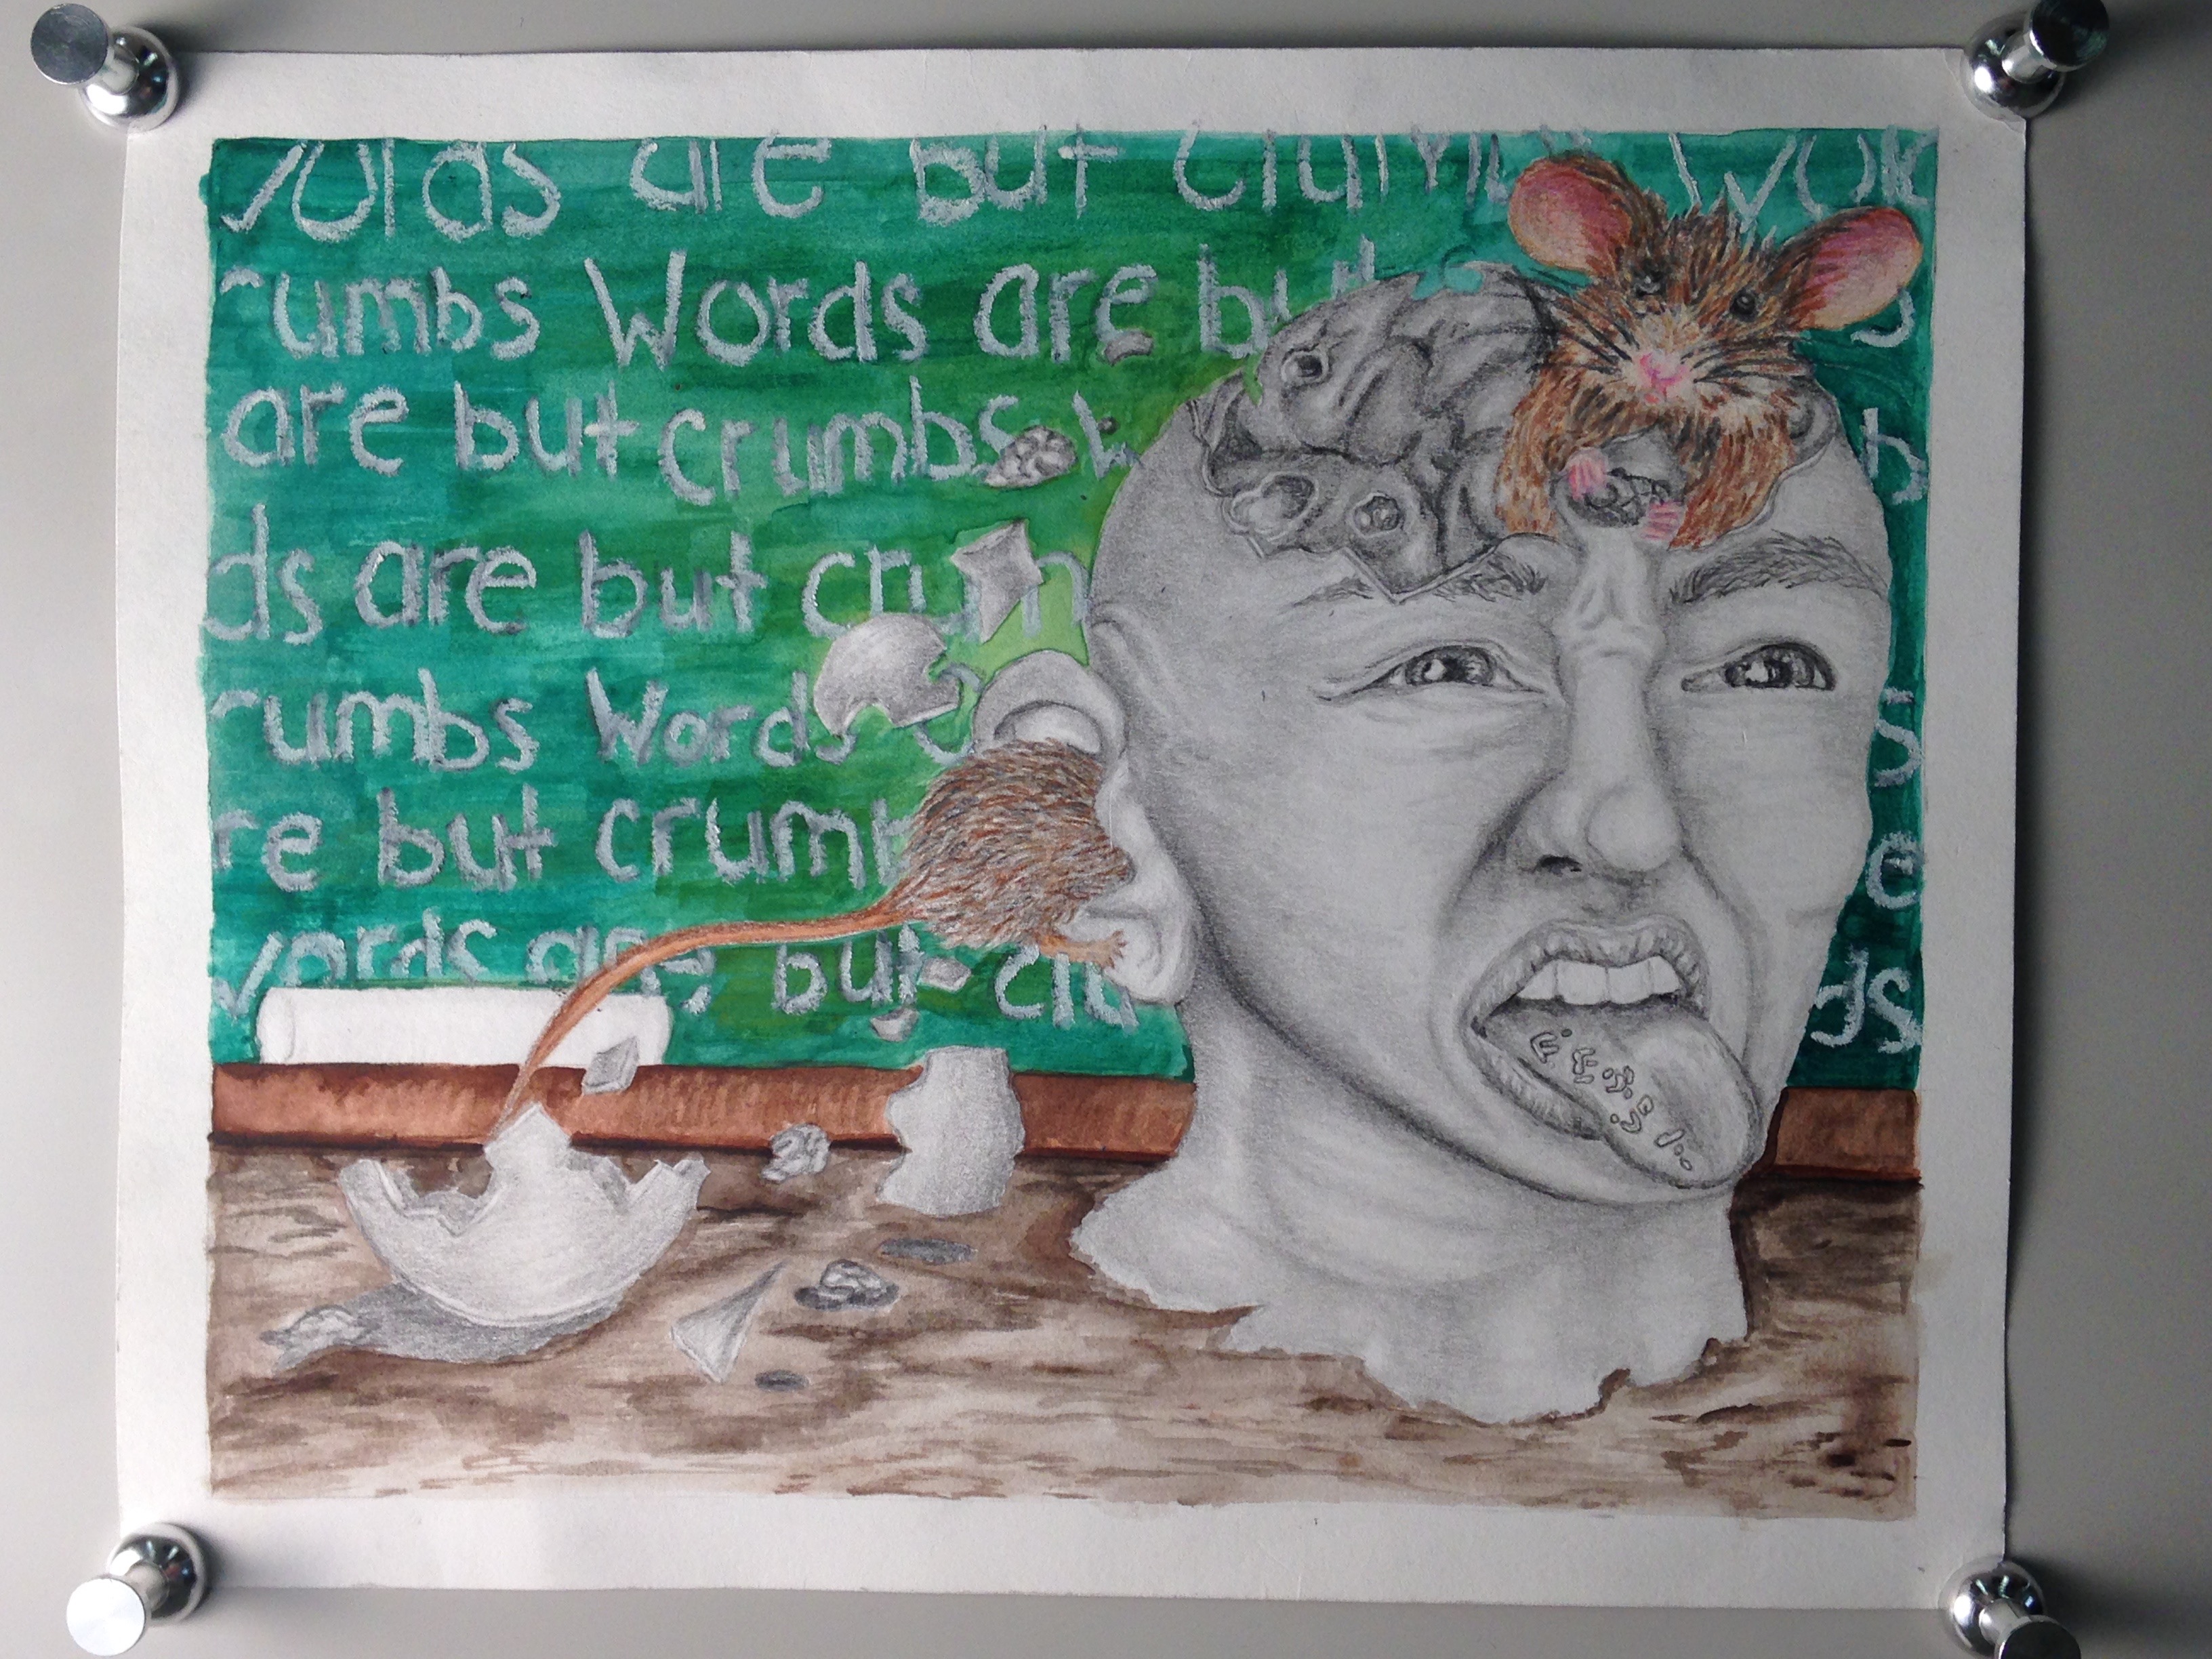 words are but crumbs wor
rumbs Words are but s
are but crumbs w b
ds are but crum
rumbs Words s
re but crumb e
words are but cru ds